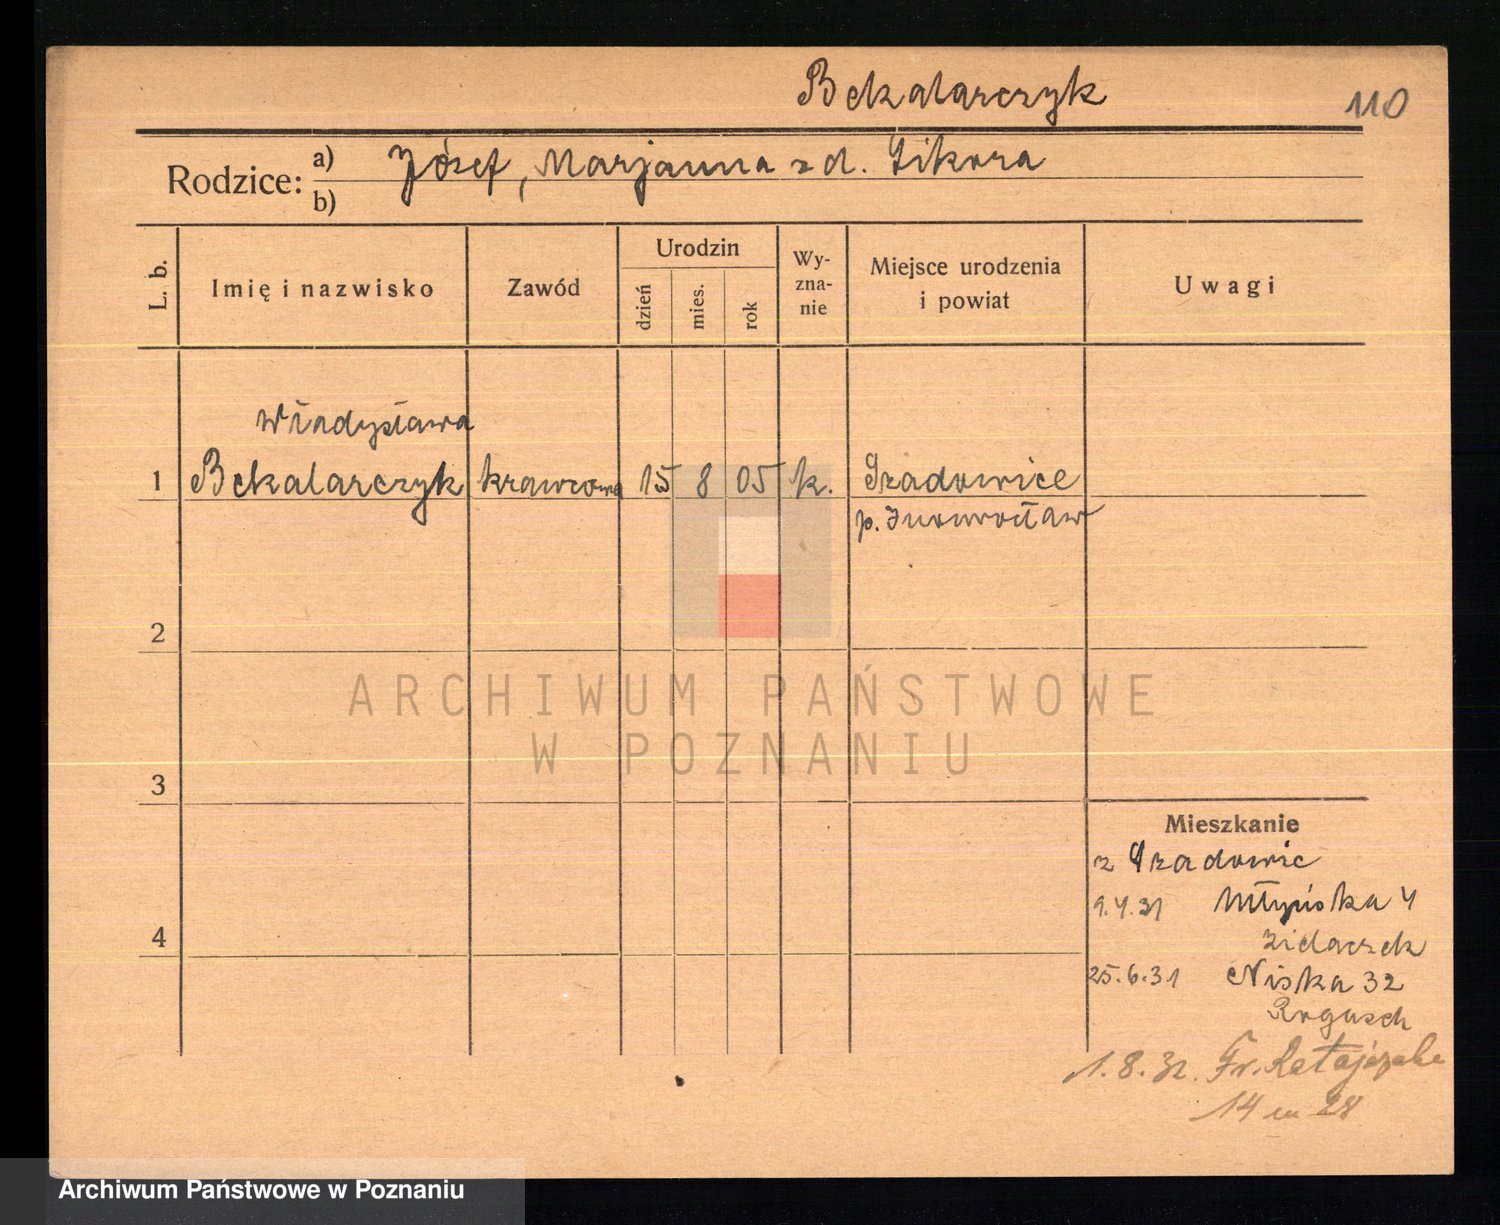 Bekalarczyk
110
Rodzice: a) Józef, Marjanna z d. Sikora
b)
L. b.
Imię i nazwisko
Zawód
Urodzin
dzień
mies.
rok
Wy-
zna-
nie
Miejsce urodzenia
i powiat
Uwagi
Władysława
1 Bekalarczyk krawcowa 15 8 05 k. Szadowice
p. Inowrocław
2
3
4
Mieszkanie
z Szadowic
9.4.31 Młyńska 4
25.6.31 Niska 32
1.8.32. Fr. Ratajczaka
14 m 28
ARCHIWUM PAŃSTWOWE
W POZNANIU
Archiwum Państwowe w Poznaniu